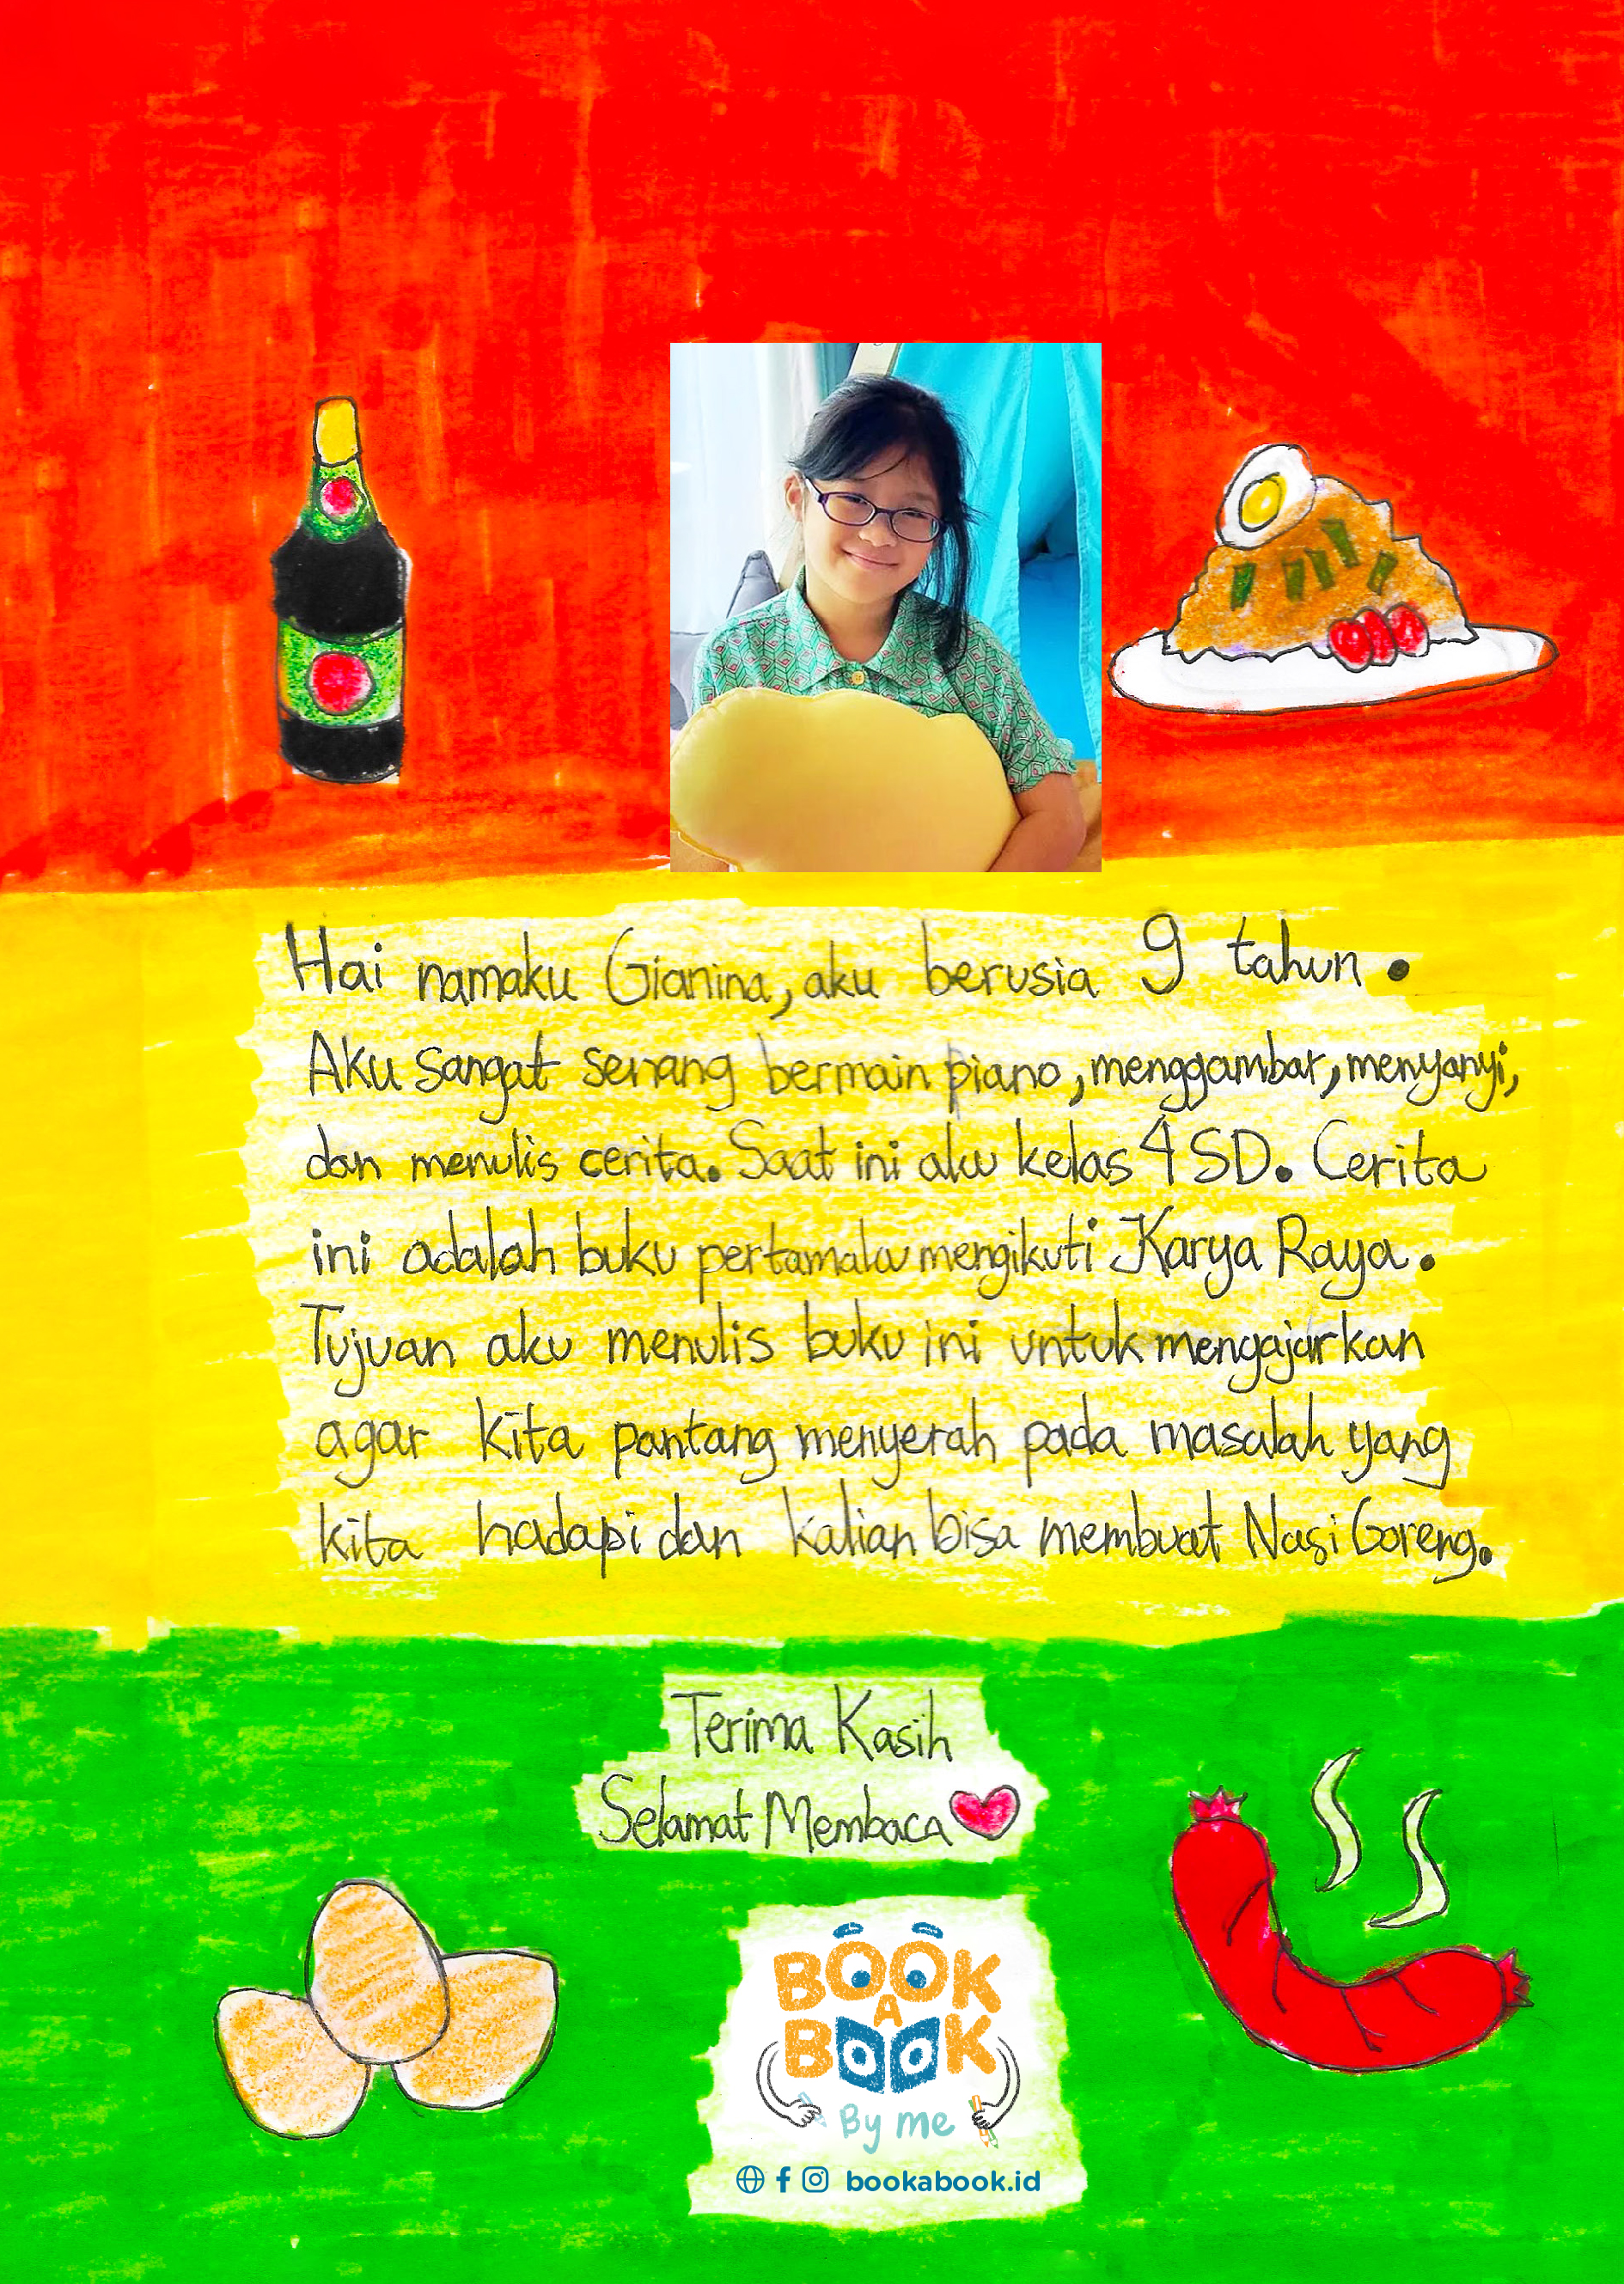 Hai namaku Gianina, aku berusia 9 tahun.
Aku sangat senang bermain piano, menggambar, menyanyi,
dan menulis cerita. Saat ini aku kelas 4 SD. Cerita
ini adalah buku pertamaku mengikuti Karya Raya.
Tujuan aku menulis buku ini untuk mengajarkan
agar kita pantang menyerah pada masalah yang
kita hadapi dan kalian bisa membuat Nasi Goreng.
Terima Kasih
Selamat Membaca
BOOK
A
BOOK
By me
bookabook.id